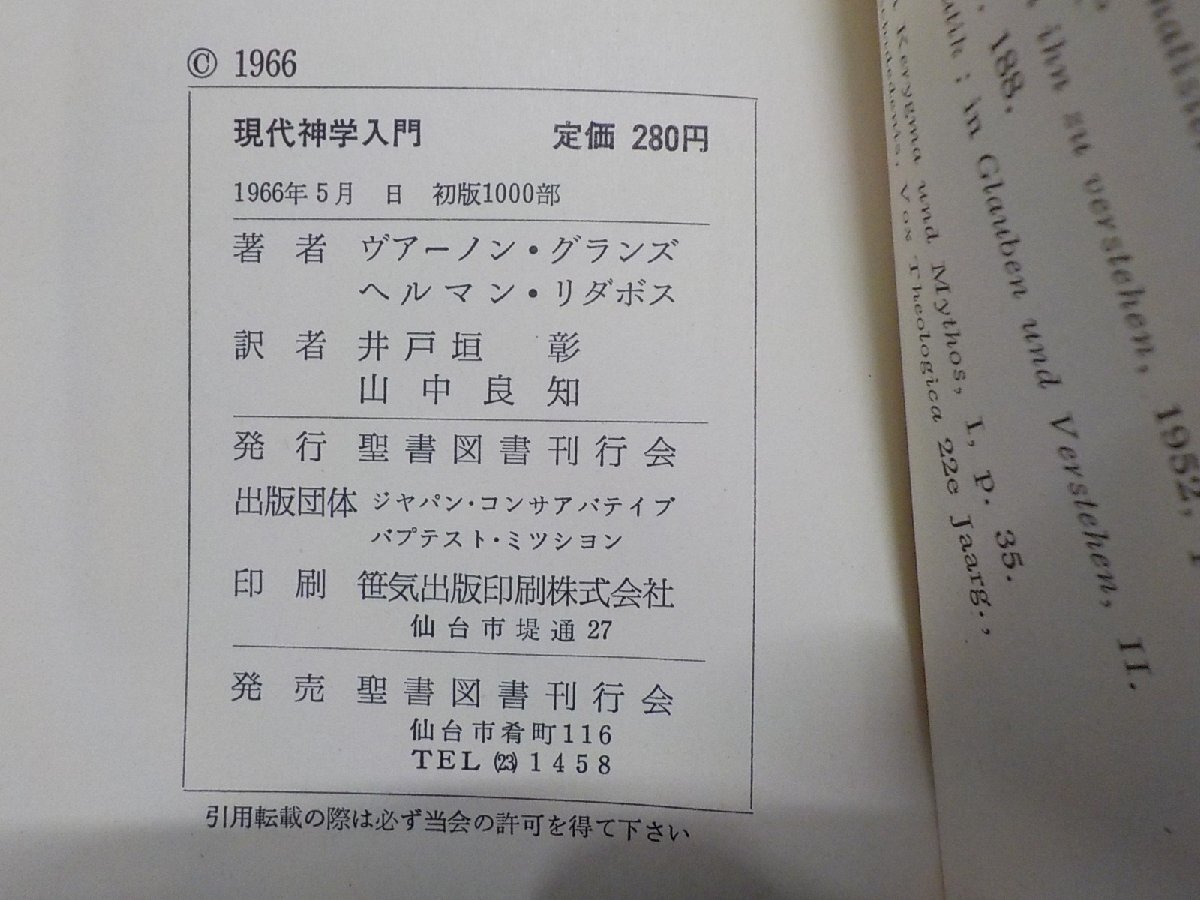 © 1966
現代神学入門 定価 280円
1966年5月 日 初版1000部
著者 ヴアーノン・グランズ
ヘルマン・リダボス
訳者 井戸垣 彰
山中良知
発行 聖書図書刊行会
出版団体 ジヤパン・コンサアバテイブ
バプテスト・ミツシヨン
印刷 笹気出版印刷株式会社
仙台市堤通27
発売 聖書図書刊行会
仙台市肴町116
TEL (23) 1458
引用転載の際は必ず当会の許可を得て下さい
ihn zu verstehen, 1952,
188.
in Glauben und Verstehen, II.
Kerygma und Mythos, I, p. 35.
Vox Theologica 22e Jaarg.,